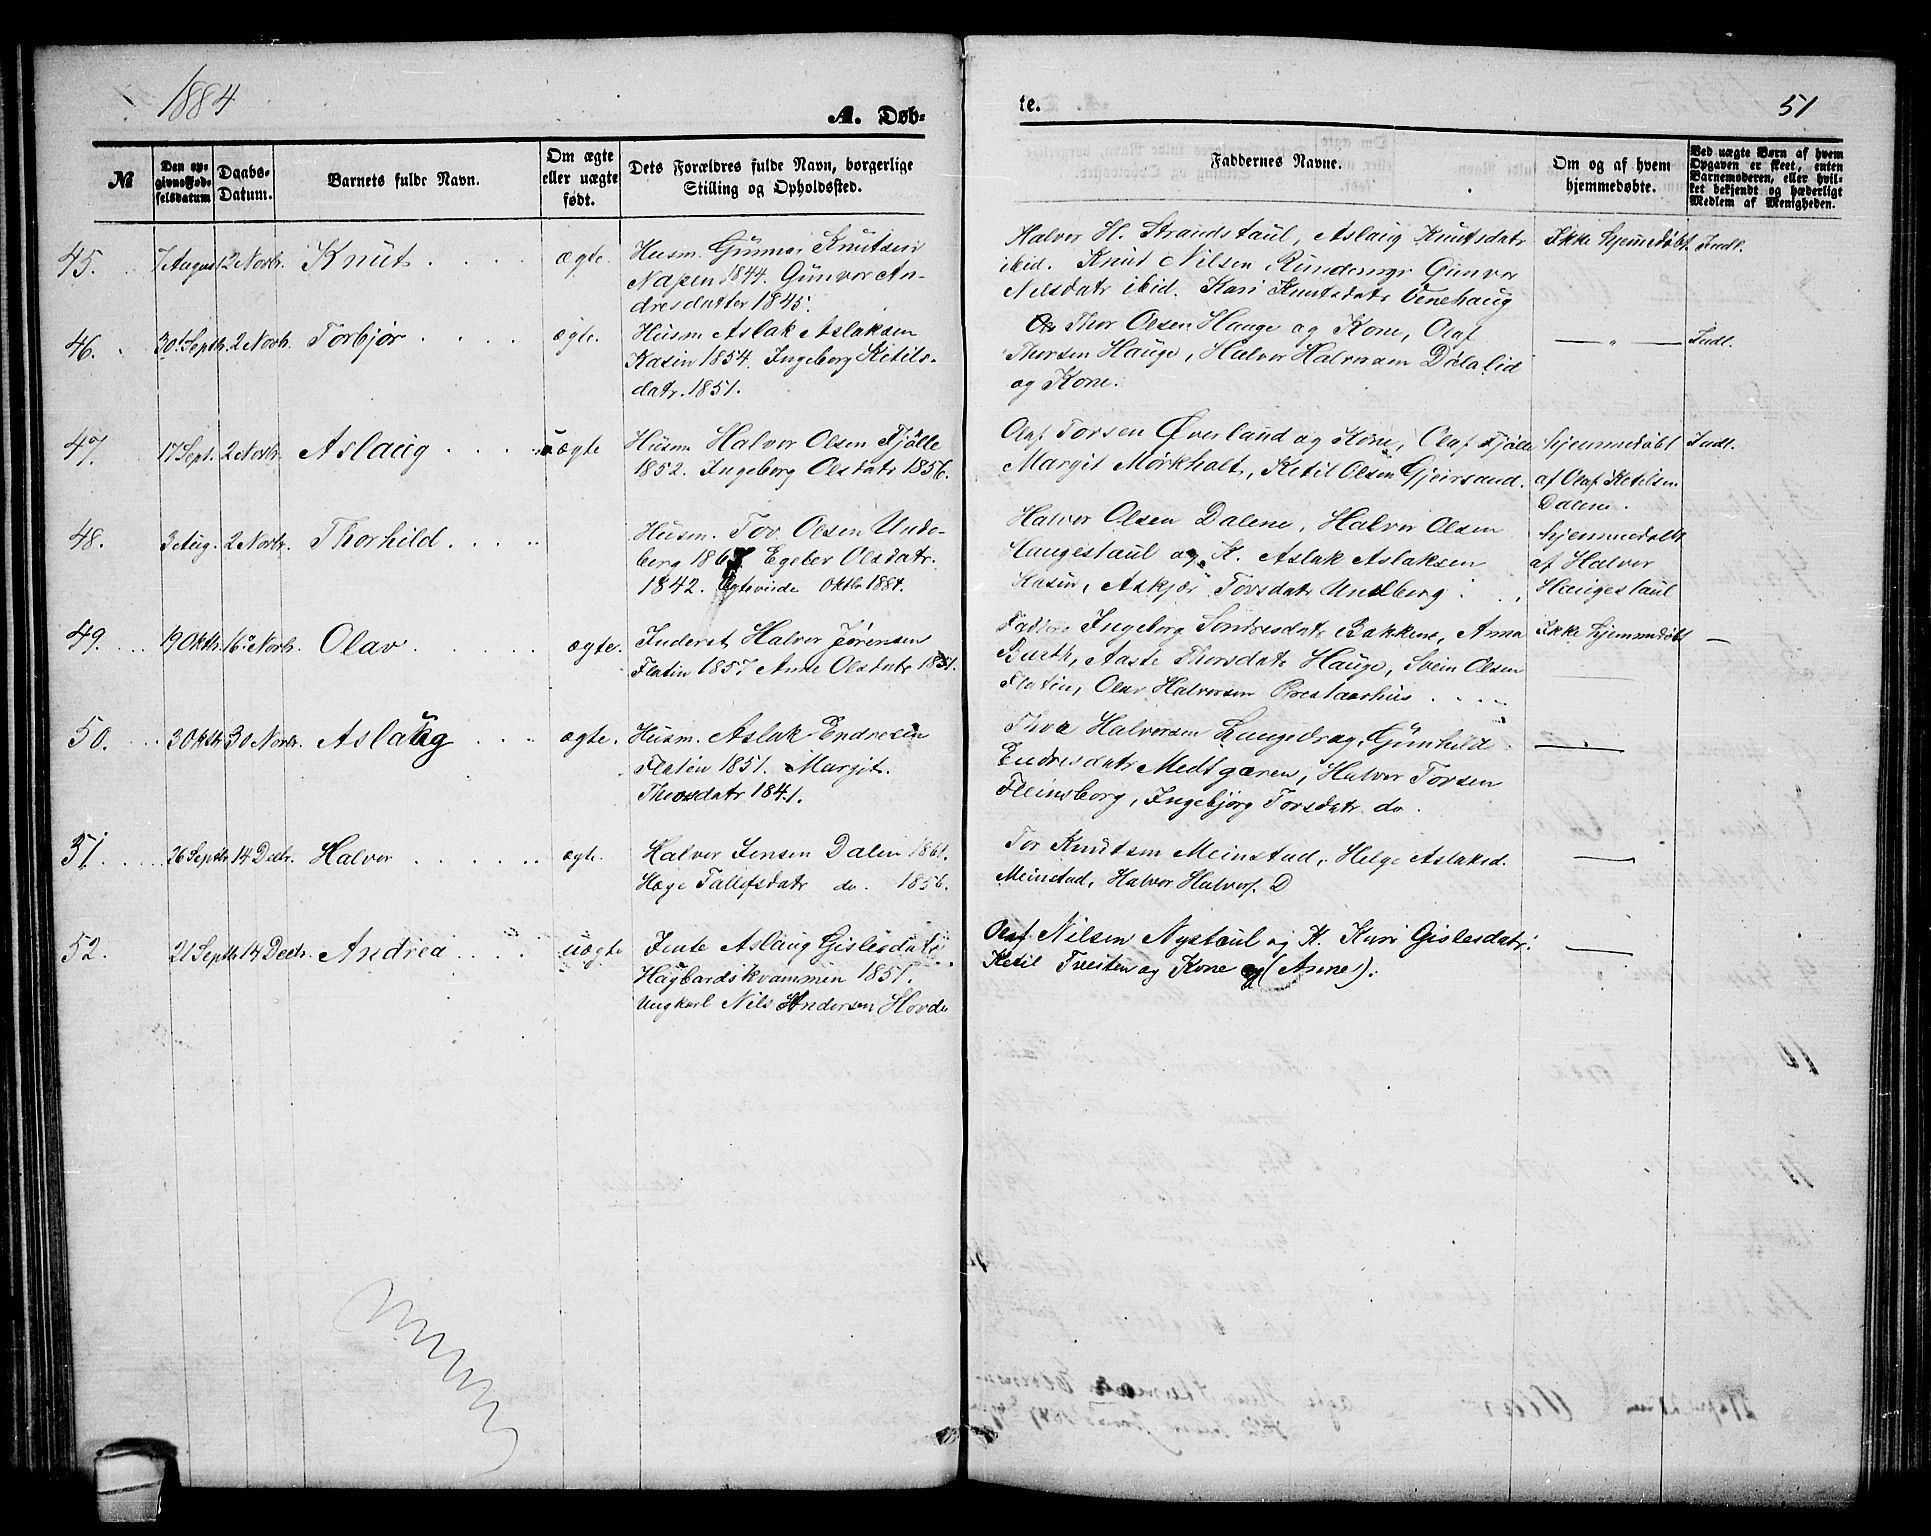 1884
A. Døb-
te.
51
№
Den opgivne Fødselsdatum
Daabs-Datum.
Barnets fulde Navn.
Om ægte eller uægte født.
Dets Forældres fulde Navn, borgerlige Stilling og Opholdssted.
Faddernes Navne.
Om og af hvem hjemmedøbte.
Ved uægte Børn af hvem Opgaven er skeet, enten Barnemoderen, eller hvilket bekjendt og hæderligt Medlem af Menigheden.
45. 7 August 2 Novbr. Knut ægte. Husm. Gunnar Knutsen
Napen 1844. Gunvor An-
dresdatter 1845.
Halvor H. Strandstaul, Aslaug Knutsdatr
ibid. Knut Nilsen Rundemyr Gunvor
Nilsdatr ibid. Kari Knutsdatr Venehaug
Ikke hjemmedøbt Indl.
46. 30 Septbr. 2 Novbr. Torbjør ægte. Husm Aslak Aslaksen
Kasin 1854. Ingeborg Ketils-
datr. 1851.
Thor Olsen Hauge og Kone, Olaf
Thorsen Hauge, Halvor Halvorsen Dølalid
og Kone.
— „ — Indl.
47. 17 Sept. 2 Novbr. Aslaug uægte Husm Halvor Olsen Fjølle
1852. Ingeborg Olsdatr 1856.
Olaf Torsen Øverland og Kone, Olaf Fjølle
Margit Mørkholt, Ketil Olsen Gjeirsund.
hjemmedøbt
af Olaf Ketilsen
Dalene.
Indl.
48. 3 Aug. 2 Novbr. Thorhild Husm. Tov Olsen Und-
berg 1867 Egeber Olsdatr.
1842. Ægteviede Oktbr 1884.
Halvor Olsen Dalene, Halvor Olsen
Haugestaul og K. Aslak Aslaksen
Kasin, Askjær Torsdatr Undberg
hjemmedøbt
af Halvor
Haugestaul
49. 19 Oktbr. 16 Novbr. Olav ægte. Inderst Halvor Jørensen
Flatin 1857 Anne Olsdatr 1851.
Ingeborg Sondresdatr Bakkene, Anna
Bueth, Aaste Thorsdatr Hauge, Svein Olsen
Flatin, Olav Halvorsen Prestaarhus
Ikke hjemmedøbt —
50. 3 Oktbr 30 Novbr. Aslaug ægte. Husm. Aslak Endresen
Flatin 1851. Margit
Thorsdatr 1841.
Thor Halvorsen Langedrag, Gunhild
Endresdatr Medtgaren, Halvor Torsen
Fleinsborg, Ingebjørg Torsdatr do.
51. 26 Septbr. 14 Decbr. Halvor ægte. Halvor Jensen Dalen 1861.
Hæge Tallefsdatr do. 1856.
Tor Knutsen Meinstad, Helge Aslaksd.
Meinstad, Halvor Halvors. D
52. 21 Septbr 14 Decbr. Andrea uægte Jente Aslaug Gislesdatr
Hagbardskvammen 1851.
Ungkarl Nils Andersen Hovde
Olaf Nilsen Nystaul og K. Kari Gislesdatr.
Ketil Tveiten og Kone (Anne).